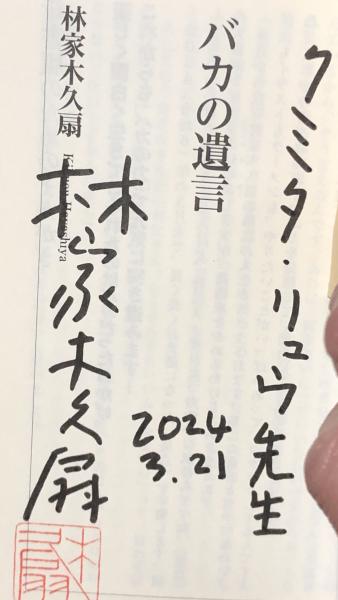 クミタ・リュウ先生
バカの遺言
2024
3.21
林家木久扇
Kikuou Hayashiya
林家木久扇